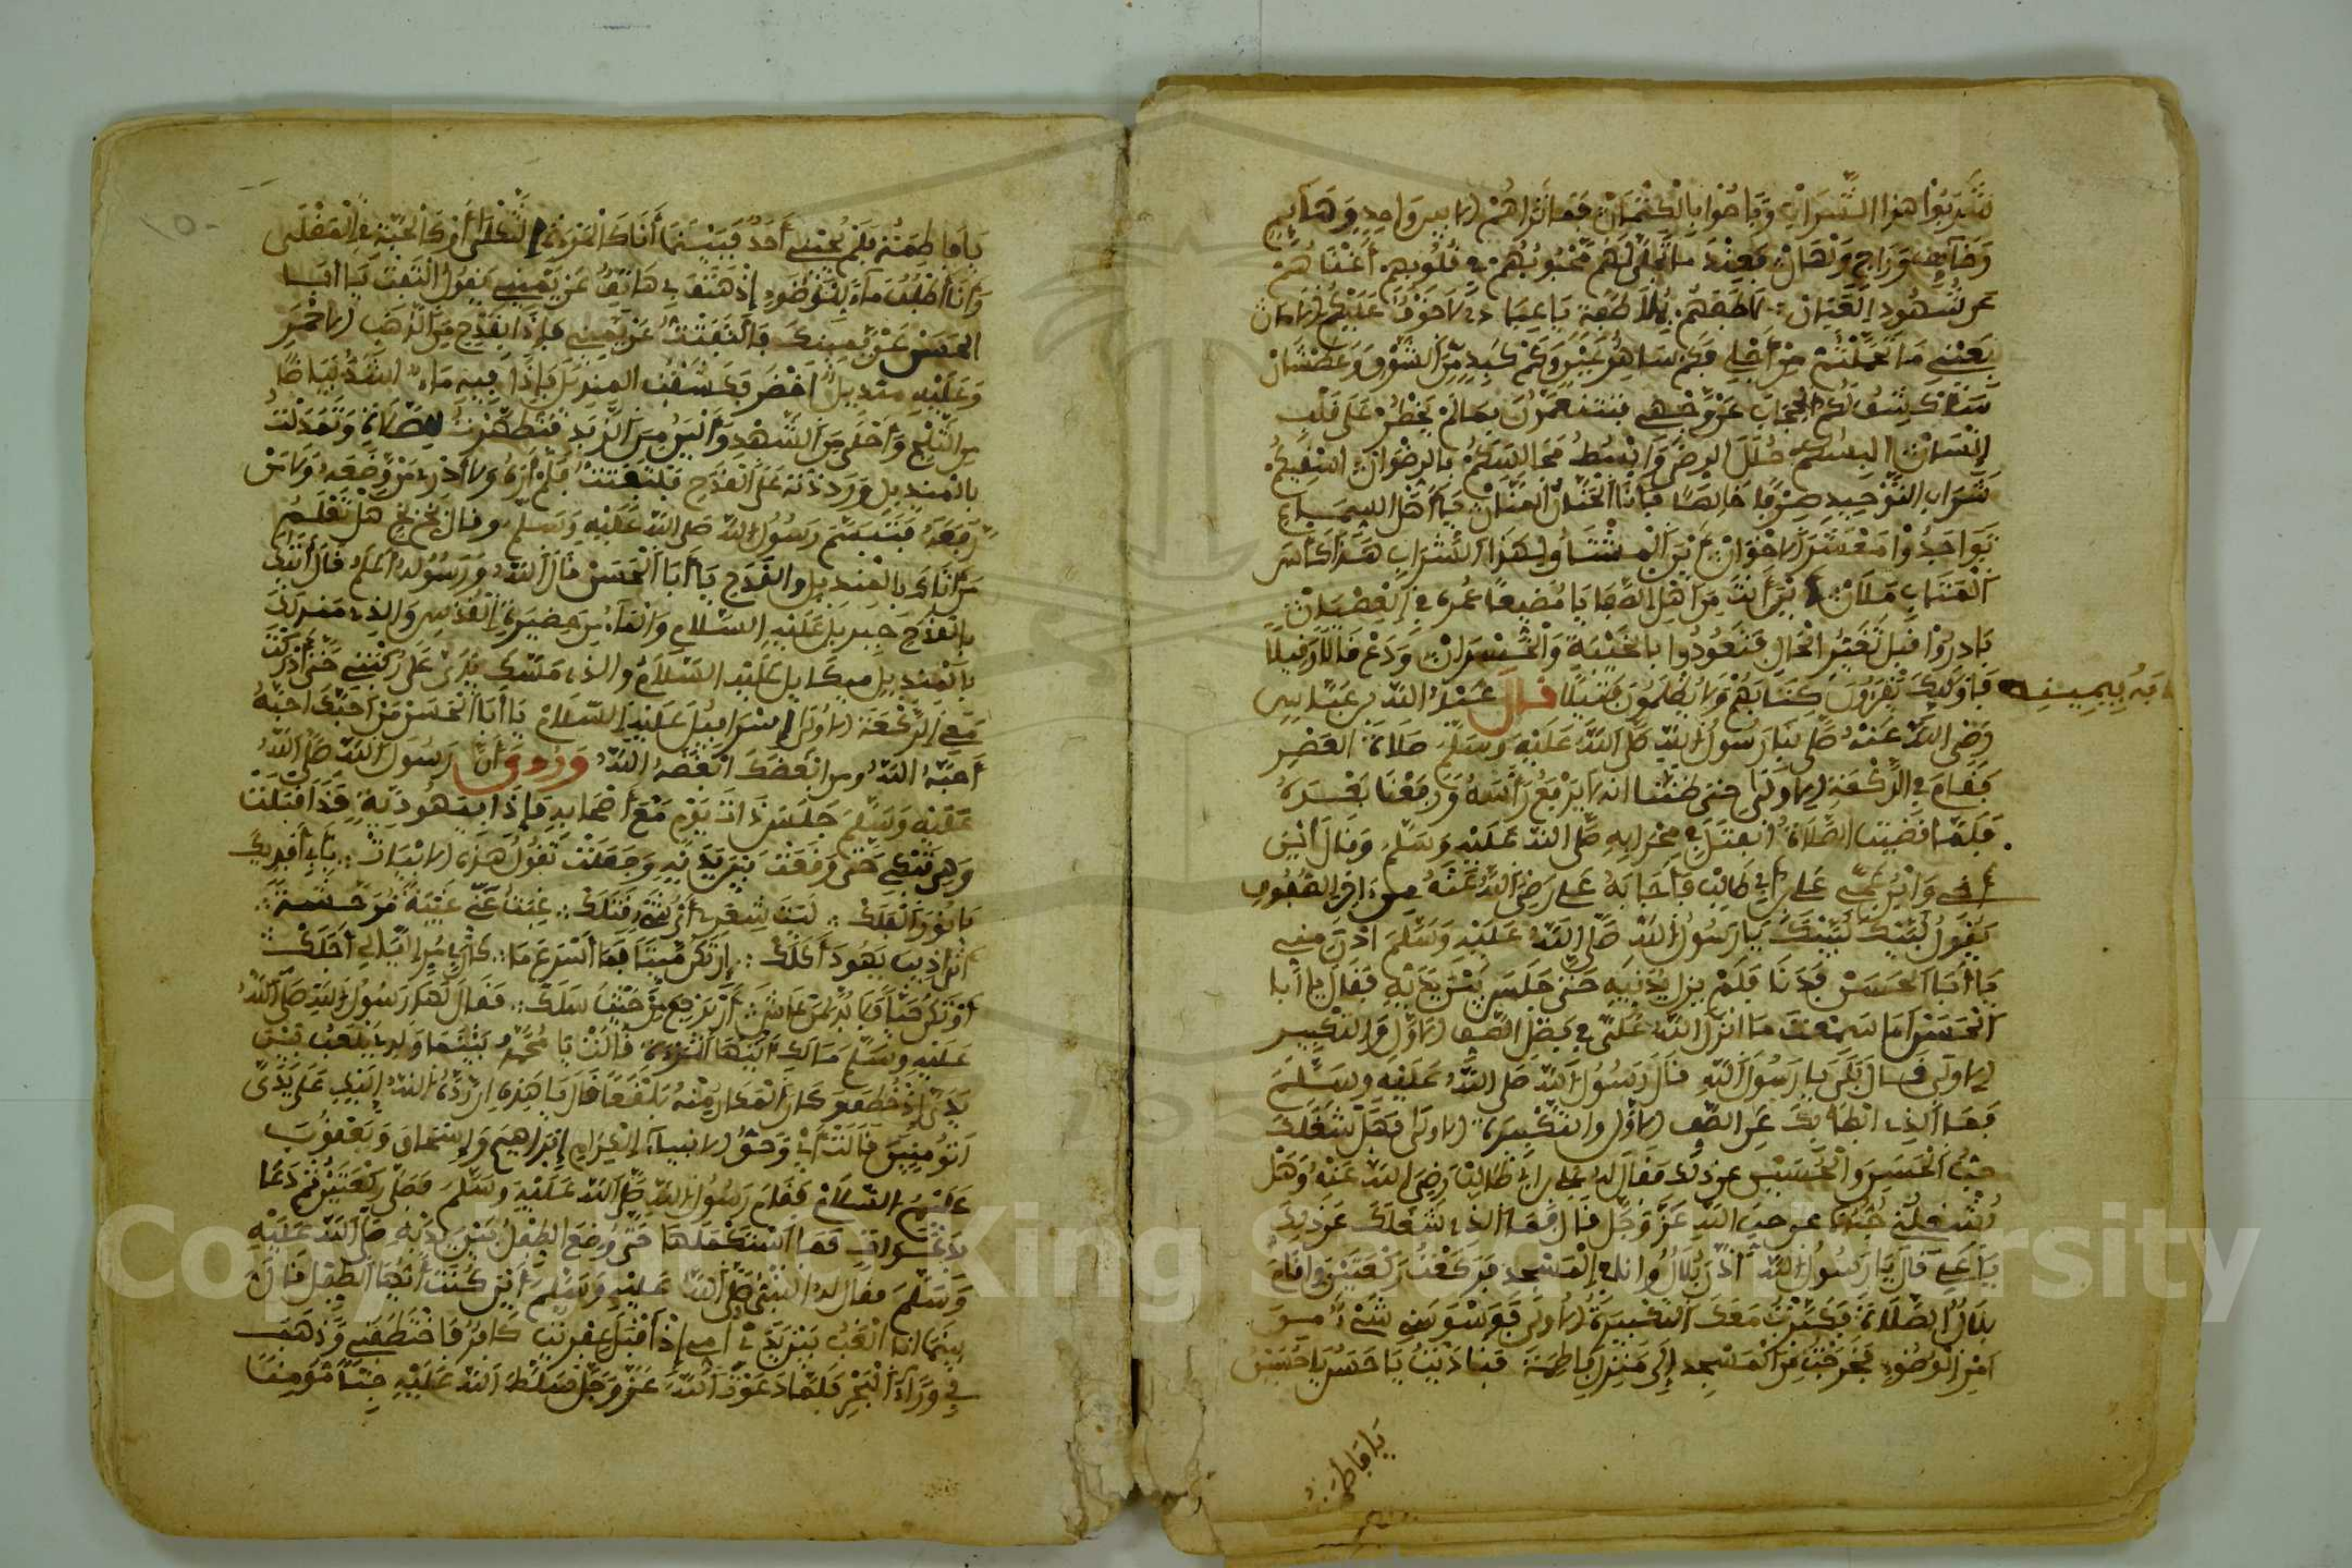 شربوا هذا الشراب وباحوا بالكتمان فما تراهم الا بين واحد وهايم
وخايف وراج ولهان فعند ما تجلى لهم محبوبهم في قلوبهم أغناهم
عن شهود العيان لاطفهم بملاطفة يا عبادي لا خوف عليكم الامان
بعيني ما تحملتم من أجلي فكم ساهر عين وكم كبد من الشوق وعطشان
سأكشف لكم الحجاب عن وجهي فتتنعمون بما لم يخطر على قلب
إنسان البسكم حلل الرضى وابسط مجالسكم بالرضوان اسقيكم
شراب التوحيد صرفا خالصا فأنا الحنان المنان يا أهل السماع
تواجدوا معشر الاخوان أين المشتاق لهذا الشراب هذا كأس
المتاب ملآن أين أنت من أهل الصفا يا مضيعا عمره في العصيان
بادروا قبل تغير الحال فتعودوا بالخيبة والخسران ودع قالا وقيلا
فأوليك يقرءون كتابهم ولا يظلمون فتيلا قال عبد الله بن عباس
ابه بيمينه
رضي الله عنه صلى بنا رسول الله صلى الله عليه وسلم صلاة العصر
فقام في الركعة الاولى حتى ظننا انه لا يرفع رأسه ورفعنا بعده
فلما قضيت الصلاة انفتل في محرابه صلى الله عليه وسلم وقال أين
أخي وابن عمي علي بن أبي طالب فأجابه علي رضي الله عنه من ءاخر الصفوف
يقول لبيك لبيك يا رسول الله صلى الله عليه وسلم ادن مني
يا أبا الحسن فدنا فلم يزل يدنيه حتى جلس بين يديه فقال يا أبا
الحسن أما سمعت ما انزل الله علي في فضل الصف الاول والتكبير
الاولى قال بلى يا رسول الله قال رسول الله صلى الله عليه وسلم
فما الذي ابطا بك عن الصف الاول والتكبيرة الاولى فهل شغلك
حب الحسن والحسين عن ذلك فقال له علي بن أبي طالب رضي الله عنه وهل
يشغلني حبهما عن حب الله عز وجل قال فما الذي شغلك عن ذلك
يا علي قال يا رسول الله أذن بلال وانا في المسجد فركعت ركعتين واقام
بلال الصلاة فكبرت معك التكبيرة الاولى فوسوسني شيء من
امر الوضوء فخرجت من المسجد إلى منزل فاطمة فناديت يا حسن يا حسين
يا فاطمة
يا فاطمة فلم يجبني أحد فبينما أنا كالمرءة الثكلى أو كالحبة في المقلى
وأنا أطلب ماء للوضوء إذ هتف بي هاتف عن يميني يقول التفت يا ابا
الحسن عن يمينك فالتفتت عن يميني فإذا بقدح من الذهب الاحمر
وعليه منديل أخضر فكشفت المنديل فإذا فيه ماء اشد بياضا
من الثلج وأحلى من الشهد وألين من الزبد فتطهرت للصلاة وتمندلت
بالمنديل ورددته على القدح فالتفتت فلم أره ولا أدري من وضعه ولا من
رفعه فتبسم رسول الله صلى الله عليه وسلم وقال بخ بخ هل تعلم
من أتاك بالمنديل والقدح يا أبا الحسن قال الله ورسوله أعلم قال أتاك
بالقدح جبريل عليه السلام والماء من حضيرة القدس والذي مندلك
بالمنديل ميكايل عليه السلام والذي مسك يدي على ركبتي حتى أدركت
معي الركعة الاولى إسرافيل عليه السلام يا أبا الحسن من احبك احبه
أحبه الله ومن ابغضك ابغضه الله وروي أن رسول الله صلى الله
عليه وسلم جلس ذات يوم مع أصحابه فإذا بيهودية قد اقبلت
وهي تبكي حتى وقفت بين يديه وجعلت تقول هذه الابيات بأبي أفديك
يا نور الفلك ليت شعري أي شيء قتلك غبت عني غيبة موحشة
أترى ذيب يهود أكلك إن تكن ميتا فما أسرع ما كان من امر الليالي أجلك
أو تكن حيا فلا بد لمن عاش أن يرجع من حيث سلك فقال لها رسول الله صلى الله
عليه وسلم مالك أيتها المرءة قالت يا محمد بينما ولدي يلعب بين
يدي إذ خطف وكان المكان منه بلقعا قال يا هذه إن رد الله إبنك على يدي
اتومنين قالت أي وحق الانبياء الكرام إبراهيم وإسحاق ويعقوب
عليهم السلام فقام رسول الله صلى الله عليه وسلم فصلى ركعتين ثم دعا
بدعوات فما استكملها حتى وضع الطفل بين يديه صلى الله عليه
وسلم فقال له النبي صلى الله عليه وسلم أين كنت أيها الطفل قال
بينما انا العب بين يدي أمي إذ أقبل عفريت كافر فاختطفني وذهب
في وراء البحر فلما دعوت الله عز وجل سلط الله عليه جنا مومنا